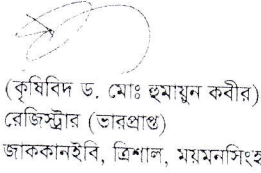 (কৃষিবিদ ড. মোঃ হুমায়ুন কবীর)
রেজিস্ট্রার (ভারপ্রাপ্ত)
জাককানইবি, ত্রিশাল, ময়মনসিংহ